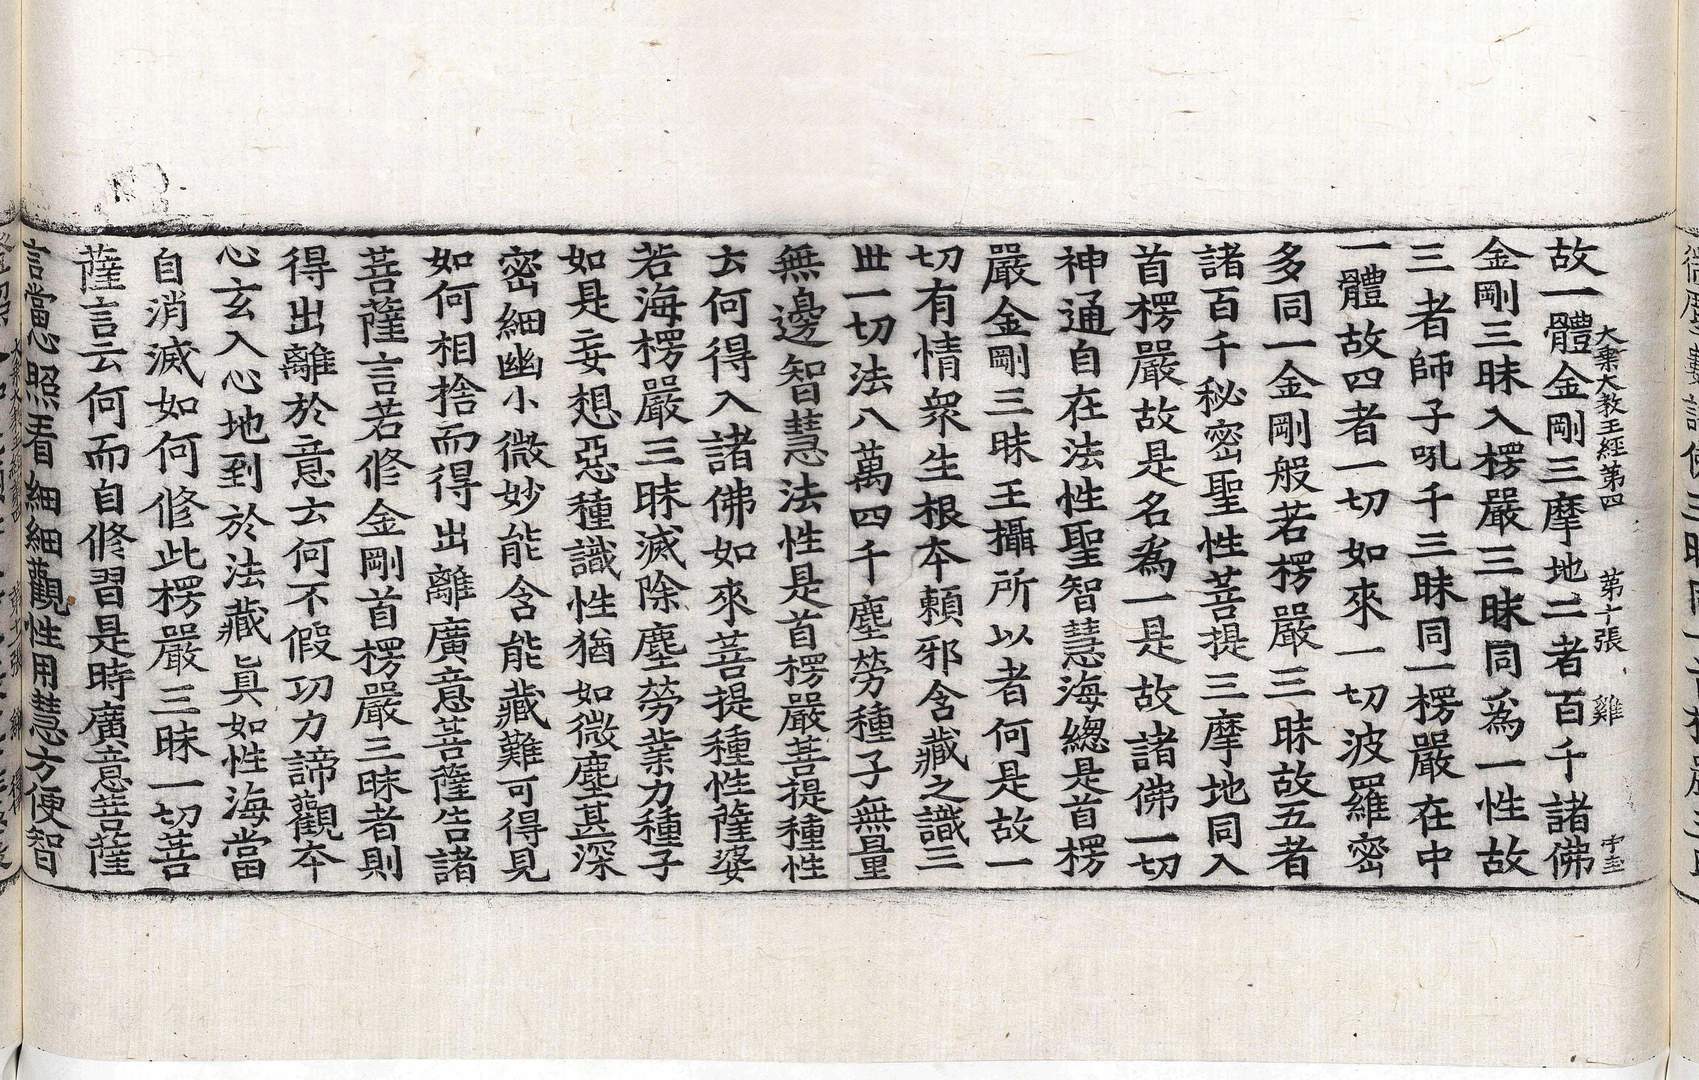 大乗大教王經第四　第十張　雞
故一體金剛三摩地二者百千諸佛
金剛三昧入楞嚴三昧同爲一性故
三者師子吼千三昧同一楞嚴在中
一體故四者一切如來一切波羅密
多同一金剛般若楞嚴三昧故五者
諸百千秘密聖性菩提三摩地同入
首楞嚴故是名爲一是故諸佛一切
神通自在法性聖智慧海緫是首楞
嚴金剛三昧王攝所以者何是故一
切有情衆生根本頼邪含藏之識三
世一切法八萬四千塵勞種子無量
無邊智慧法性是首楞嚴菩提種性
云何得入諸佛如來菩提種性薩婆
若海楞嚴三昧滅除塵勞業力種子
如是妄想惡種識性猶如微塵甚深
密細幽小微妙能含能藏難可得見
如何相捨而得出離廣意菩薩告諸
菩薩言若修金剛首楞嚴三昧者則
得出離於意云何不假功力諦觀本
心玄入心地到於法藏眞如性海當
自消滅如何修此楞嚴三昧一切菩
薩言云何而自修習是時廣意菩薩
言當心照看細細觀性用慧方便智